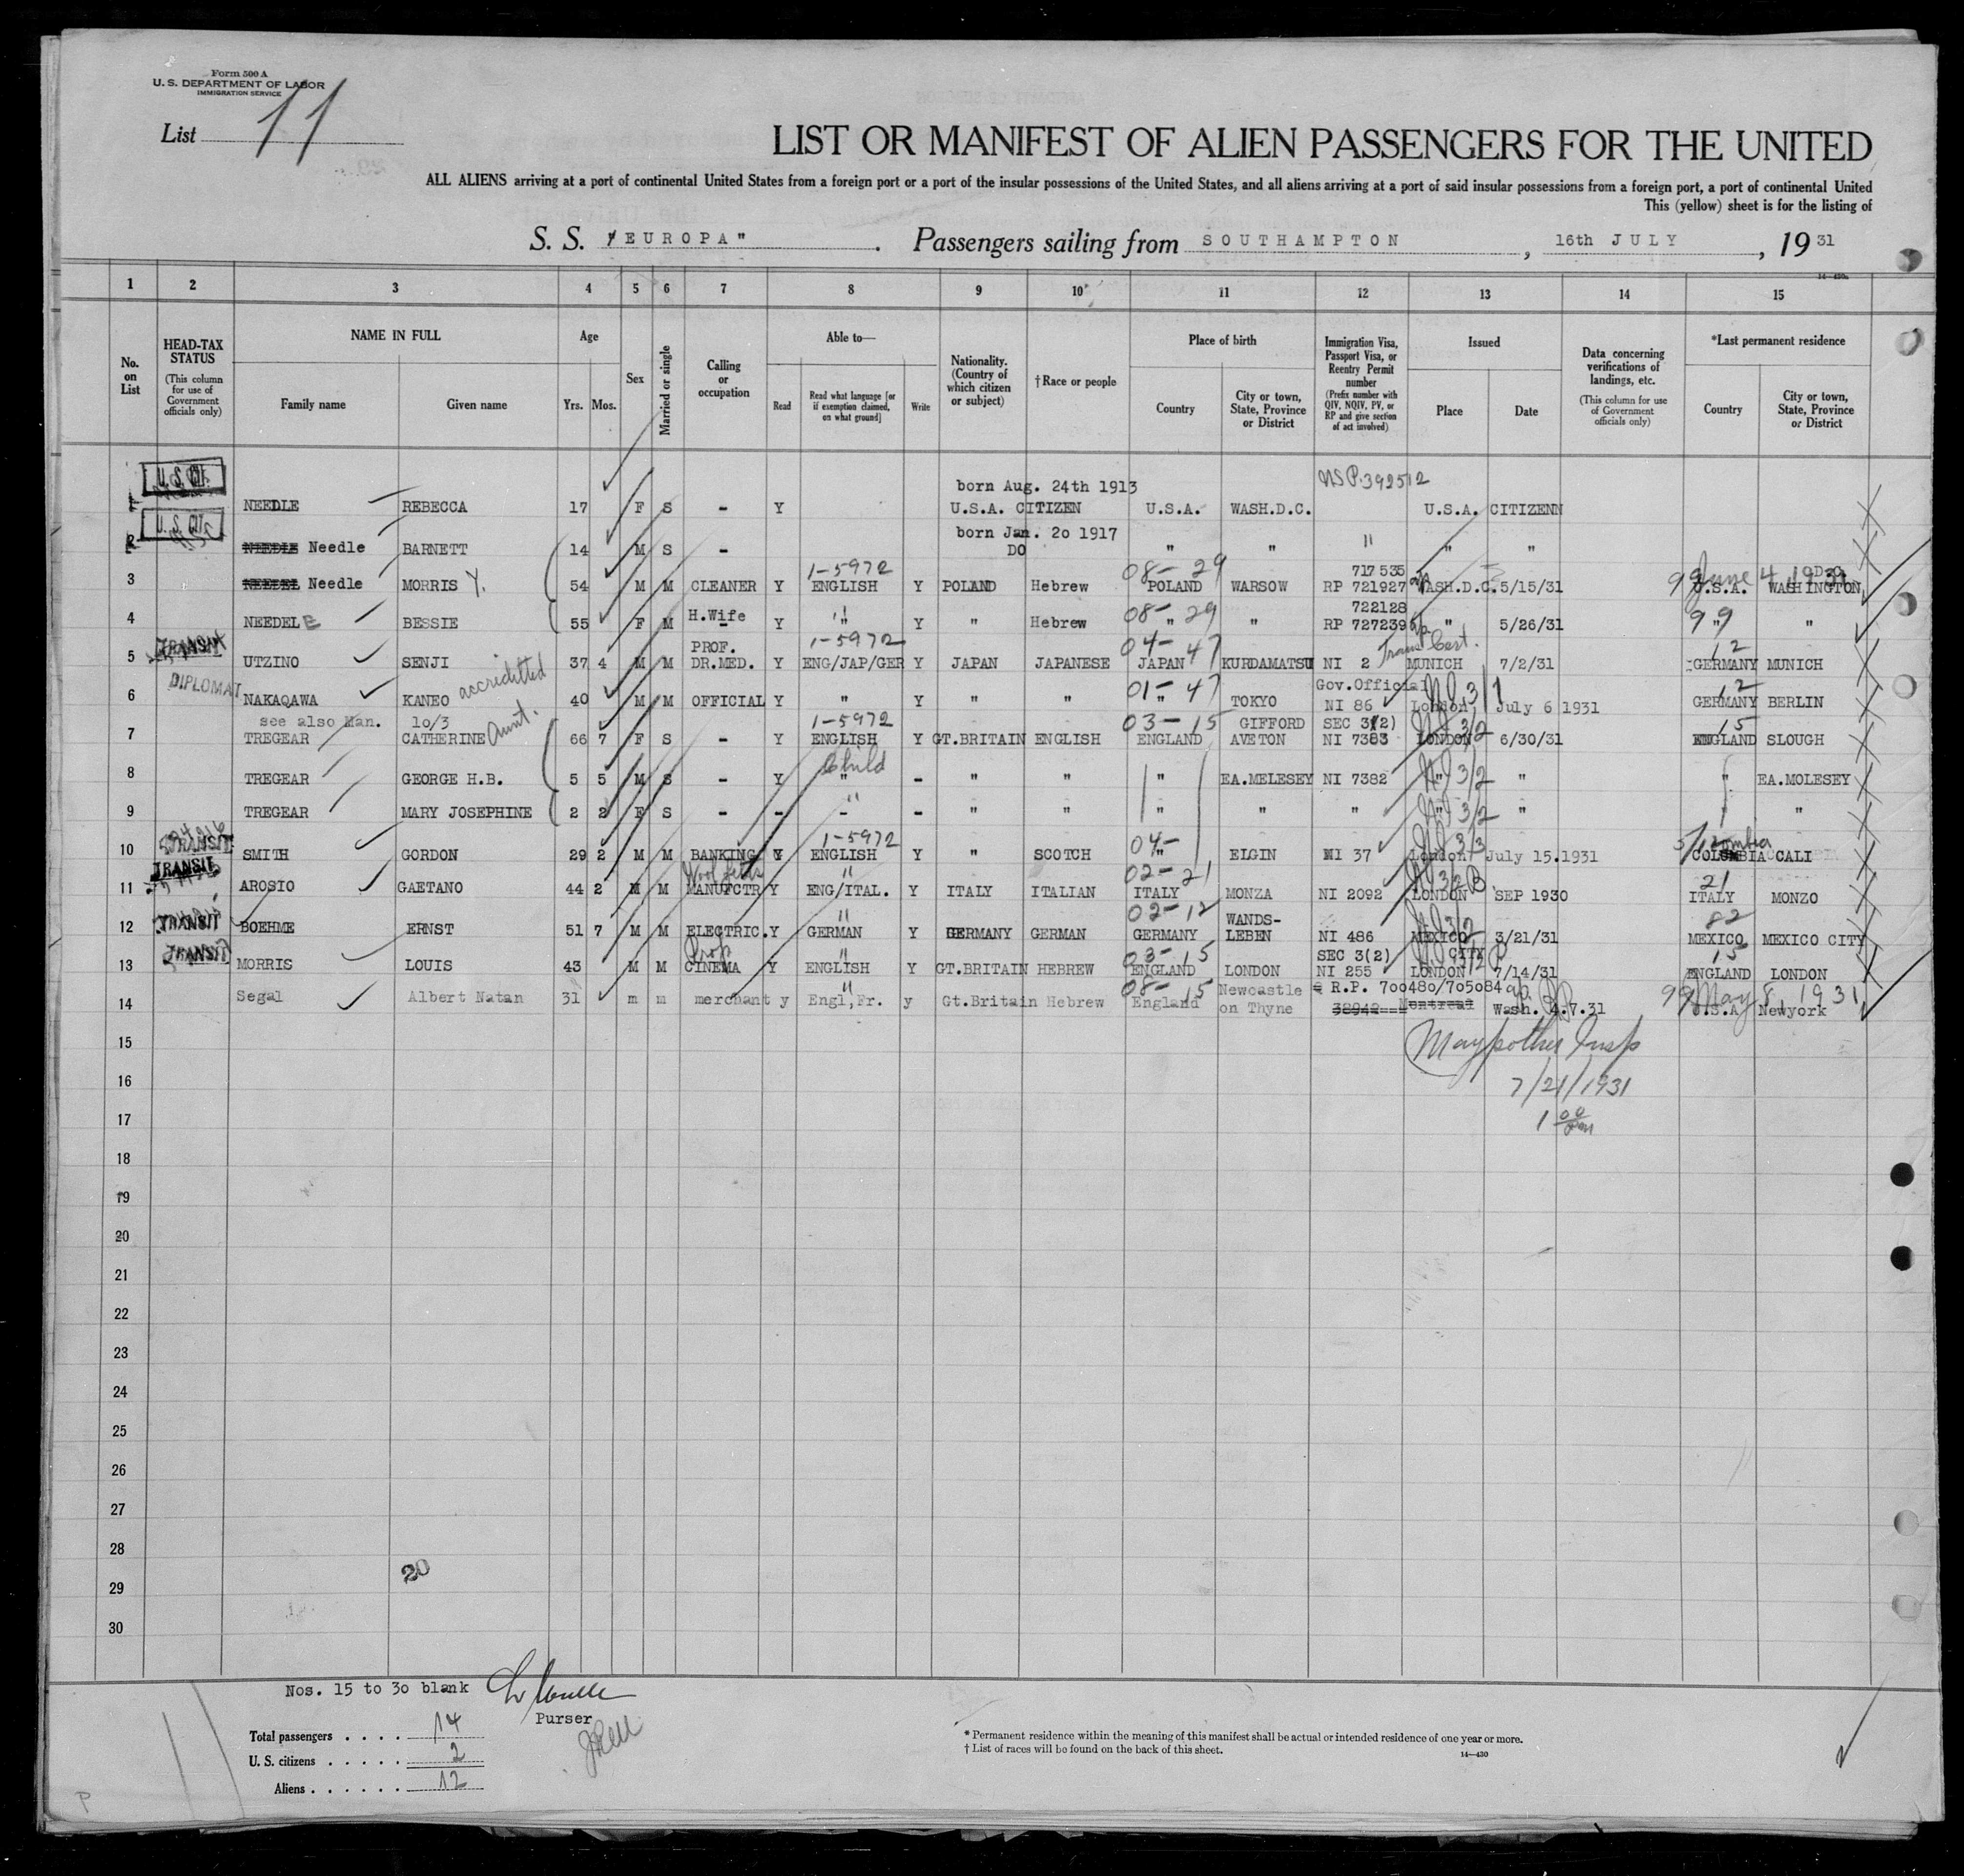 Form 500 A
U. S. DEPARTMENT OF LABOR
IMMIGRATION SERVICE
List 11
LIST OR MANIFEST OF ALIEN PASSENGERS FOR THE UNITED
ALL ALIENS arriving at a port of continental United States from a foreign port or a port of the insular possessions of the United States, and all aliens arriving at a port of said insular possessions from a foreign port, a port of continental United
This (yellow) sheet is for the listing of
S. S. "EUROPA" . Passengers sailing from SOUTHAMPTON , 16th JULY , 19 31
1 2 3 4 5 6 7 8 9 10 11 12 13 14 15
No. on List
HEAD-TAX STATUS (This column for use of Government officials only)
NAME IN FULL Family name Given name
Age Yrs. Mos.
Sex
Married or single
Calling or occupation
Able to— Read Read what language [or if exemption claimed, on what ground] Write
Nationality. (Country of which citizen or subject)
†Race or people
Place of birth Country City or town, State, Province or District
Immigration Visa, Passport Visa, or Reentry Permit number (Prefix number with QIV, NQIV, PV, or RP and give section of act involved)
Issued Place Date
Data concerning verifications of landings, etc. (This column for use of Government officials only)
*Last permanent residence Country City or town, State, Province or District
U.S. CIT. born Aug. 24th 1913 NSP.392512
1 NEEDLE REBECCA 17 F S - Y U.S.A. CITIZEN U.S.A. WASH.D.C. U.S.A. CITIZENN
U.S. CIT. born Jan. 2o 1917
2 NEEDLE Needle BARNETT 14 M S - DO " " " " "
1-5972 08-29 717535 June 4, 1931 D.C.
3 NEEDEL Needle MORRIS Y. 54 M M CLEANER Y ENGLISH Y POLAND Hebrew POLAND WARSOW RP 721927 WASH.D.C. 5/15/31 99 U.S.A. WASHINGTON
H.Wife 08-29 722128
4 NEEDELE BESSIE 55 F M - Y " Y " Hebrew " " RP 727239 " 5/26/31 99 " "
TRANSIT PROF. 1-5972 04-47 Trans Cert. 12
5 UTZINO SENJI 37 4 M M DR.MED. Y ENG/JAP/GER Y JAPAN JAPANESE JAPAN KURDAMATSU NI 2 MUNICH 7/2/31 GERMANY MUNICH
DIPLOMAT accreditted 01-47 Gov.Official 12
6 NAKAQAWA KANEO 40 M M OFFICIAL Y " Y " " " TOKYO NI 86 London July 6 1931 GERMANY BERLIN
see also Man. 1o/3 Aunt. 1-5972 03-15 GIFFORD SEC 3(2) 15
7 TREGEAR CATHERINE 66 7 F S - Y ENGLISH Y GT.BRITAIN ENGLISH ENGLAND AVETON NI 7383 LONDON 6/30/31 ENGLAND SLOUGH
Child
8 TREGEAR GEORGE H.B. 5 5 M S - Y " - " " " EA.MELESEY NI 7382 " " " EA.MOLESEY
9 TREGEAR MARY JOSEPHINE 2 2 F S - - " - " " " " " " " " "
TRANSIT 1-5972 04-
10 SMITH GORDON 29 2 M M BANKING Y ENGLISH Y " SCOTCH " ELGIN NI 37 London July 15.1931 COLOMBIA CALI
TRANSIT 02-21 21
11 AROSIO GAETANO 44 2 M M MANUFCTR Y ENG/ITAL. Y ITALY ITALIAN ITALY MONZA NI 2092 LONDON SEP 1930 ITALY MONZO
TRANSIT 02-12 WANDS- 82
12 BOEHME ERNST 51 7 M M ELECTRIC. Y GERMAN Y GERMANY GERMAN GERMANY LEBEN NI 486 MEXICO CITY 3/21/31 MEXICO MEXICO CITY
TRANSIT Prop 03-15 SEC 3(2) 15
13 MORRIS LOUIS 43 M M CINEMA Y ENGLISH Y GT.BRITAIN HEBREW ENGLAND LONDON NI 255 LONDON 7/14/31 ENGLAND LONDON
08-15 Newcastle R.P. 7oo48o/7o5o84 99 May 8, 1931
14 Segal Albert Natan 31 m m merchant y Engl,Fr. y Gt.Britain Hebrew England on Thyne 38942 Montreal Wash. 4.7.31 U.S.A Newyork
15
16 7/21/1931
17 1 00 pm
18
19
20
21
22
23
24
25
26
27
28
20
29
30
Nos. 15 to 3o blank
Purser
Total passengers . . . . 14
U. S. citizens . . . . . 2
Aliens . . . . . . 12
* Permanent residence within the meaning of this manifest shall be actual or intended residence of one year or more.
† List of races will be found on the back of this sheet.
14—430
P